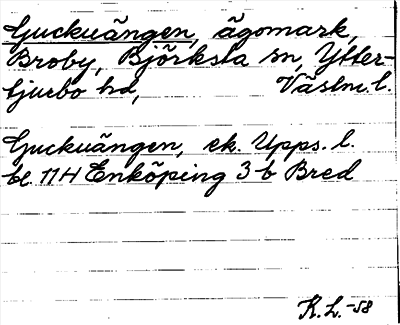 Guckuängen, ägomark,
Broby, Björksta sn, Ytter-
tjurbo hd, Västm. l.
Guckuängen, ek. Upps. l.
bl. 114 Enköping 3 b Bred
K. L. -58